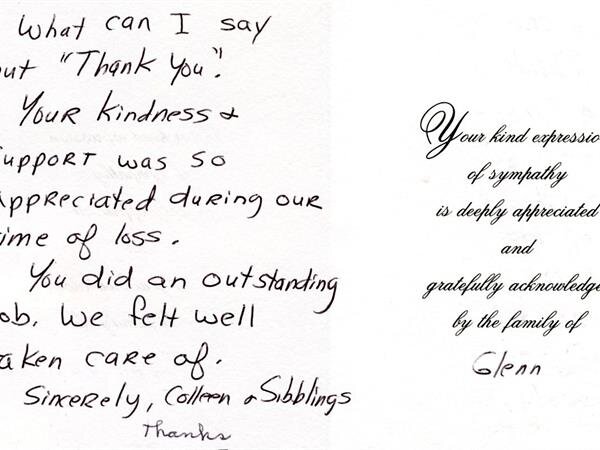 What can I say
ut "Thank You".
Your kindness &
Support was so
Appreciated during our
ime of loss.
You did an outstanding
ob. We felt well
aken care of.
Sincerely, Colleen & Sibblings
Thanks
Your kind expressio
of sympathy
is deeply appreciated
and
gratefully acknowledge
by the family of
Glenn